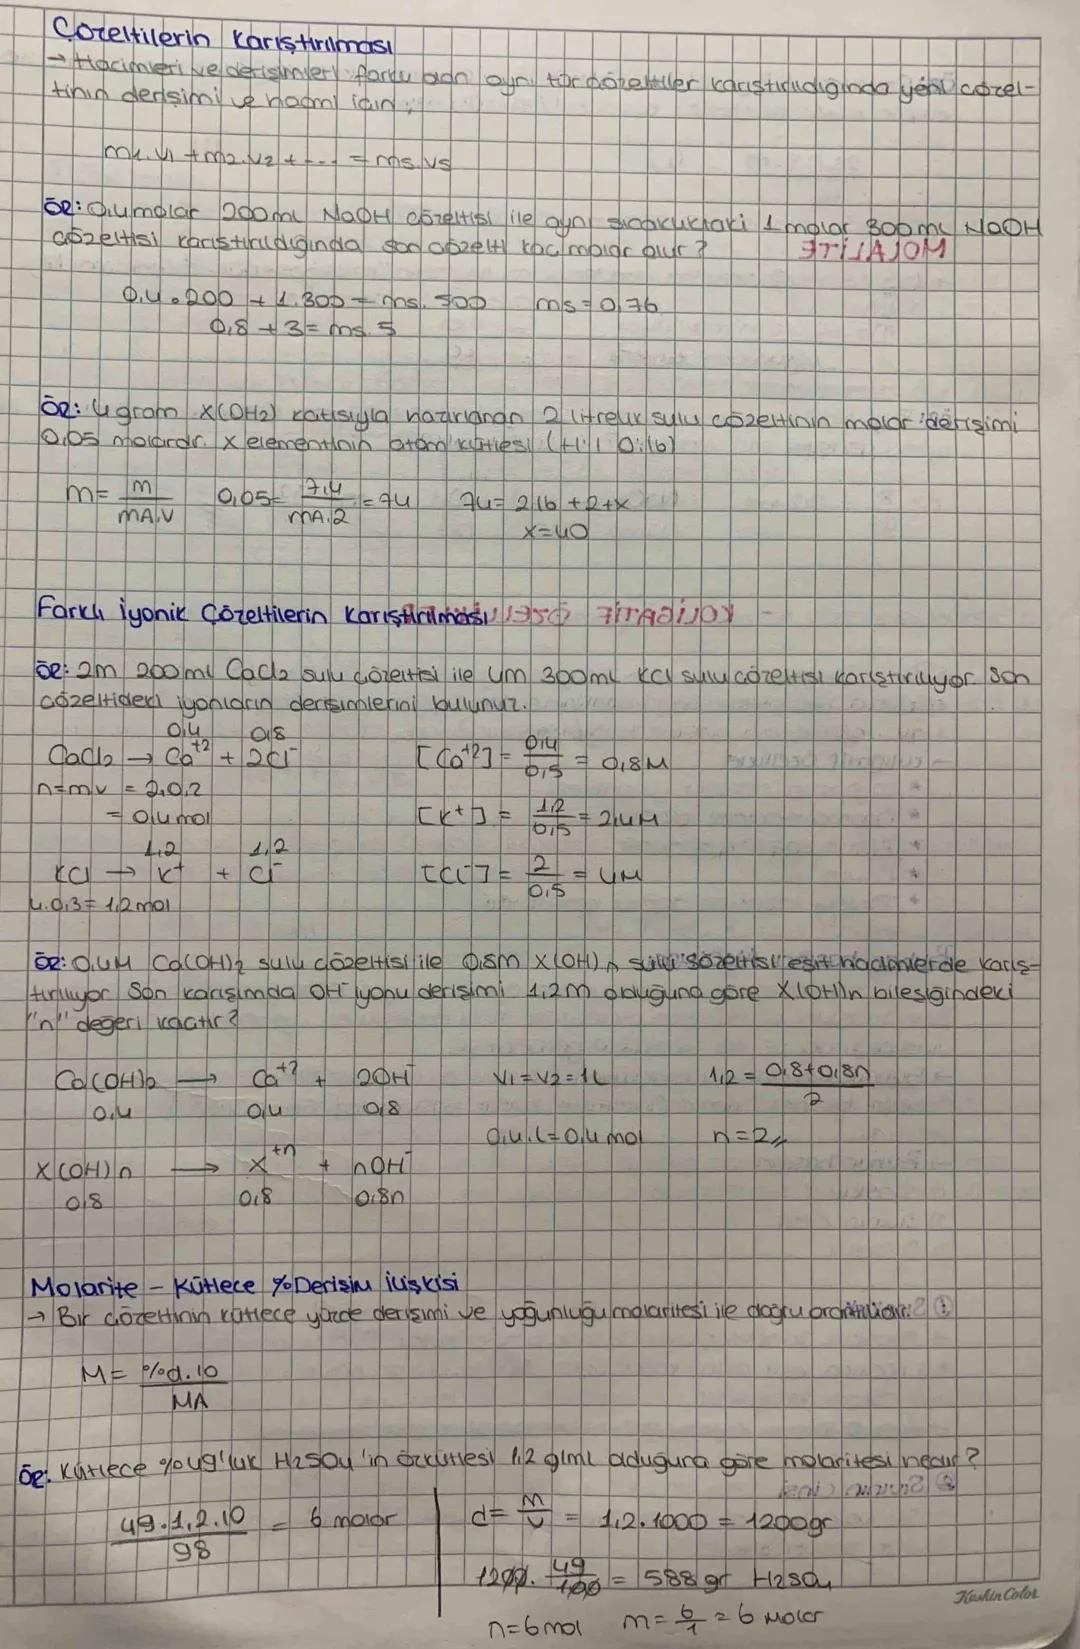 Çözeltilerin Karıştırılması
→ Hacimleri ve derişimleri farklı olan aynı tür çözeltiler karıştırıldığında yeni çözel-
tinin derişimi ve hacmi için;
m1.v1 + m2.v2 + ... = ms.vs
Ör: 0,4 molar 200 ml NaOH çözeltisi ile aynı sıcaklıktaki 1 molar 300 ml NaOH
çözeltisi karıştırıldığında son çözelti kaç molar olur?
MOLALİTE
0,4.200 + 1.300 = ms.500 ms = 0,76
0,8 + 3 = ms.5
Ör: 4 gram X(OH2) katısıyla hazırlanan 2 litrelik sulu çözeltinin molar derişimi
0,05 molardır. X elementinin atom kütlesi (H:1 O:16)
m = m/mA.V 0,05 = 7,4/mA.2 = 74 74 = 2.16 + 2 + x
x = 40
Farklı İyonik Çözeltilerin Karıştırılması KOLİGATİF
Ör: 2m 200 ml CaCl2 sulu çözeltisi ile 4m 300 ml KCl sulu çözeltisi karıştırılıyor. Son
çözeltideki iyonların derişimlerini bulunuz.
0,4 0,8
CaCl2 → Ca+2 + 2Cl- [Ca+2] = 0,4/0,5 = 0,8M
n = m.v = 2.0,2
= 0,4 mol [K+] = 1,2/0,5 = 2,4M
1,2 1,2
KCl → K+ + Cl- [Cl-] = 2/0,5 = 4M
4.0,3 = 1,2 mol
Ör: 0,4M Ca(OH)2 sulu çözeltisi ile 0,8m X(OH)n sulu çözeltisi eşit hacimlerde karış-
tırılıyor. Son karışımda OH- iyonu derişimi 1,2m olduğuna göre X(OH)n bileşiğindeki
"n" değeri kaçtır?
Ca(OH)2 → Ca+2 + 2OH- V1 = V2 = 1L 1,2 = 0,8+0,8n/2
0,4 0,4 0,8
0,4.1 = 0,4 mol n = 2
X(OH)n → X+n + nOH-
0,8 0,8 0,8n
Molarite - Kütlece % Derişim İlişkisi
→ Bir çözeltinin kütlece yüzde derişimi ve yoğunluğu molaritesi ile doğru orantılıdır.
M = %d.10/MA
Ör: Kütlece %49'luk H2SO4'in özkütlesi 1,2 g/ml olduğuna göre molaritesi nedir?
49.1,2.10/98 = 6 molar d = m/v = 1,2.1000 = 1200gr
1200.49/100 = 588 gr H2SO4
n = 6 mol m = 6/1 = 6 Molar
Keskin Color